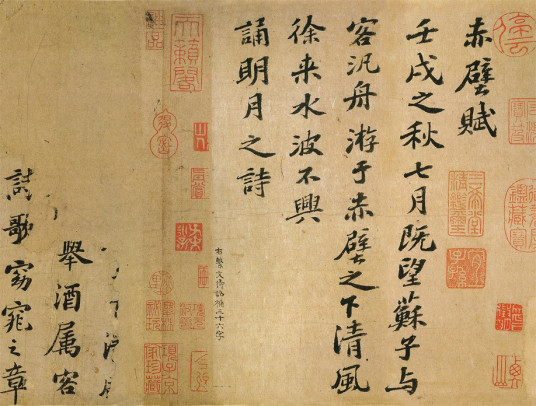 赤壁賦
壬戌之秋七月既望蘇子与
客汎舟游于赤壁之下清風
徐来水波不興
誦明月之詩
右繫文待詔補三十六字
天籟閣
舉酒属客
詩歌窈窕之章